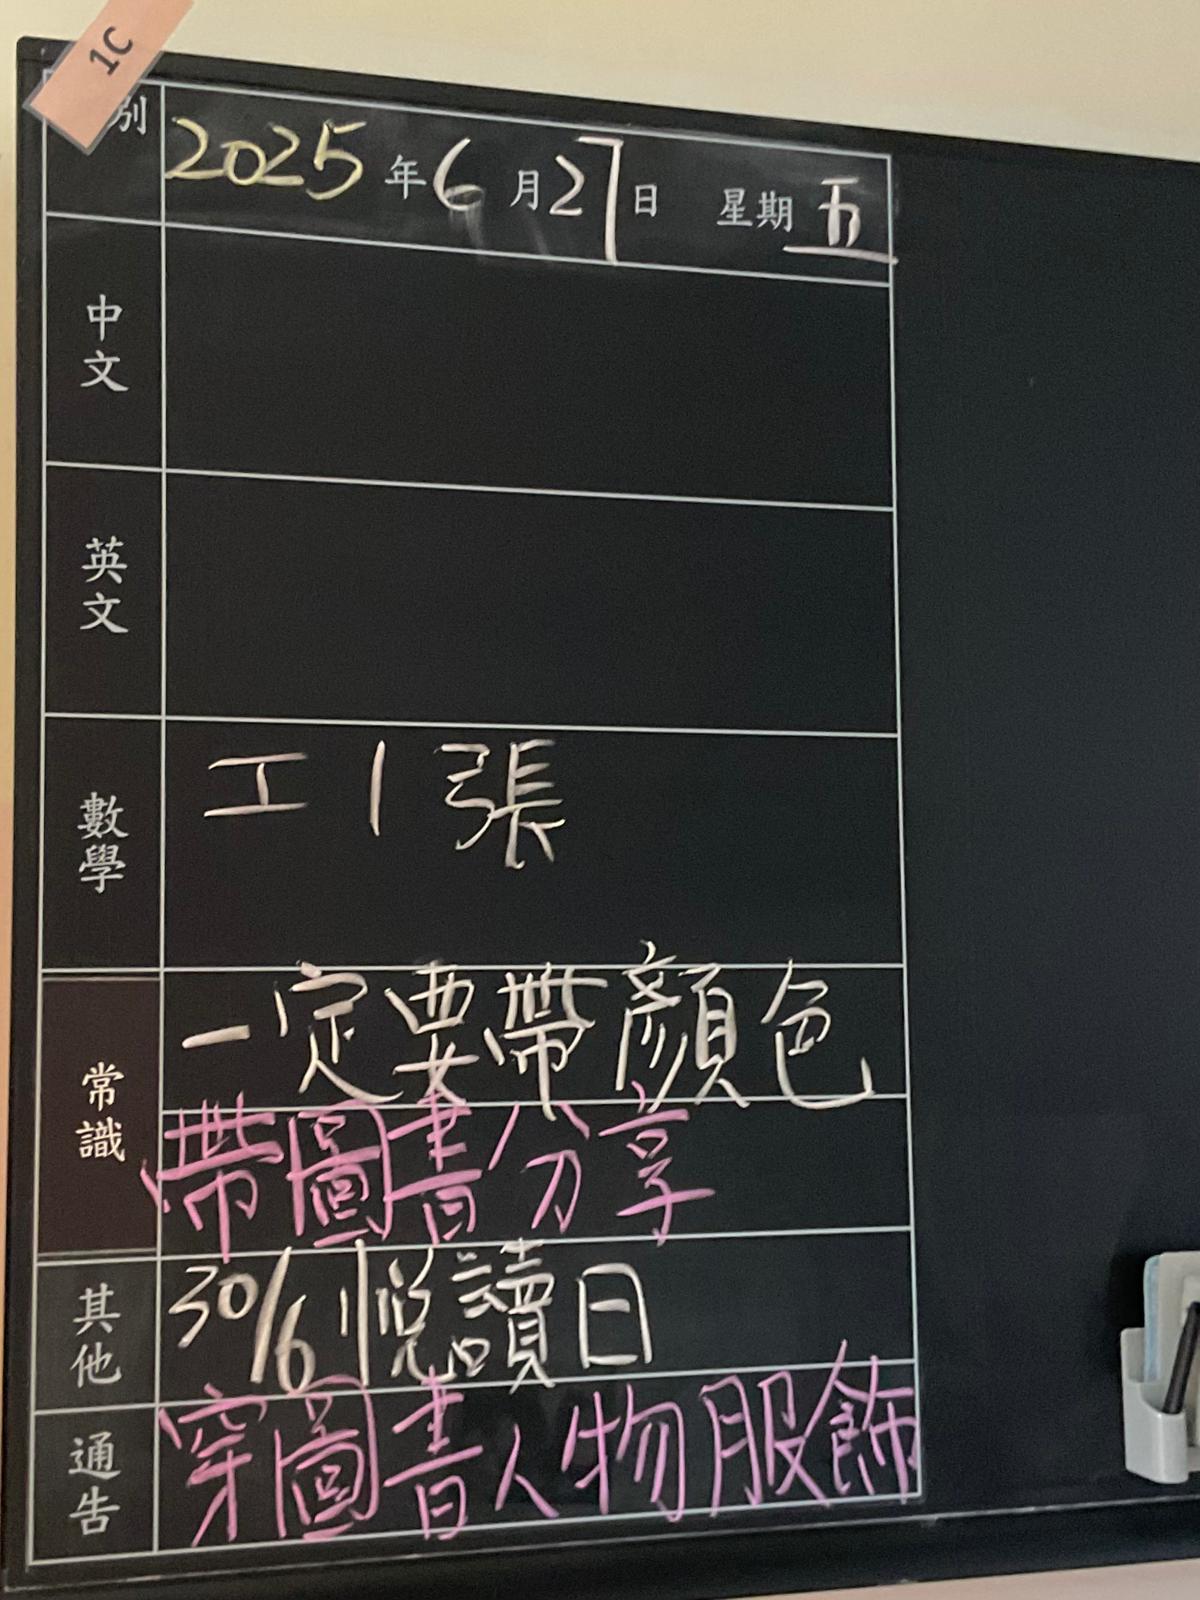 1C
別
2025年6月27日 星期五
中文
英文
數學
工1張
常識
一定要帶顏色
帶圖書分享
其他
30/6 悅讀日
通告
穿圖書人物服飾